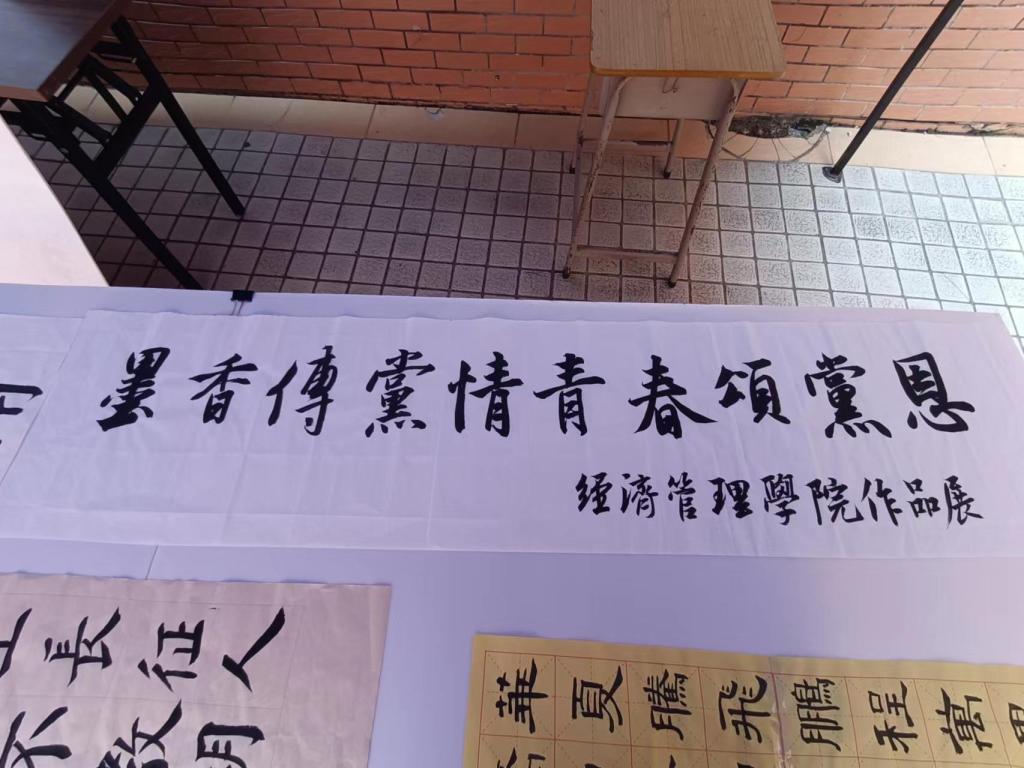 墨香傳黨情青春頌黨恩
經濟管理學院作品展
長征人
華夏騰飛鵬程萬里